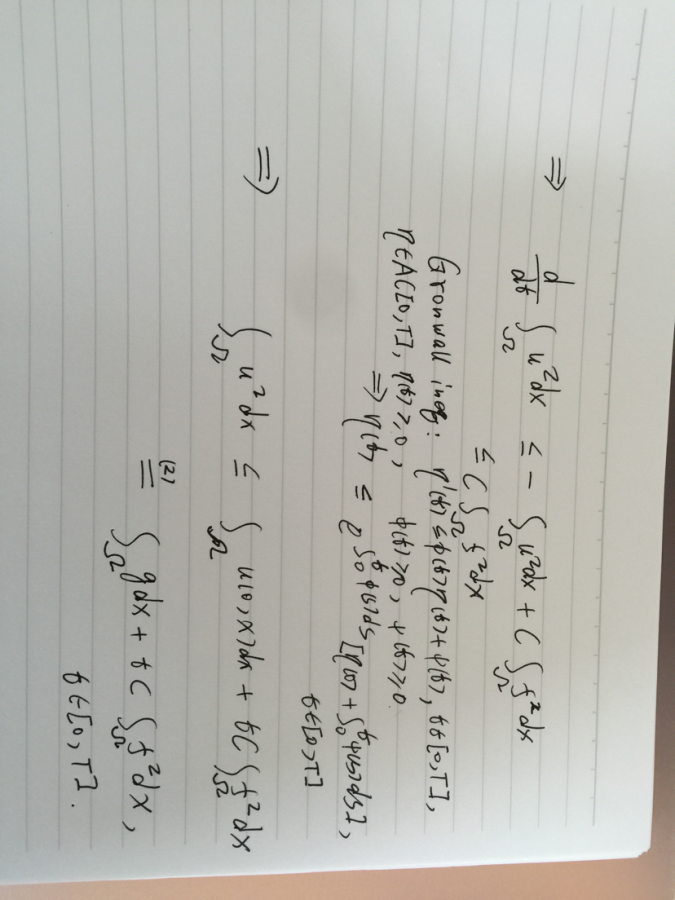 ⇒ d/dt ∫_Ω u²dx ≤ - ∫_Ω u²dx + C ∫_Ω f²dx
≤ C ∫_Ω f²dx
Gronwall ineq: η'(t) ≤ φ(t)η(t) + ψ(t), t∈[0,T],
η∈AC[0,T], η(t)≥0, φ(t)≥0, ψ(t)≥0.
⇒ η(t) ≤ e^{∫_0^t φ(s)ds} [η(0) + ∫_0^t ψ(s)ds],
t∈[0,T]
⇒ ∫_Ω u²dx ≤ ∫_Ω u(0,x)dx + tC ∫_Ω f²dx
(2) = ∫_Ω g dx + tC ∫_Ω f²dx,
t∈[0,T].